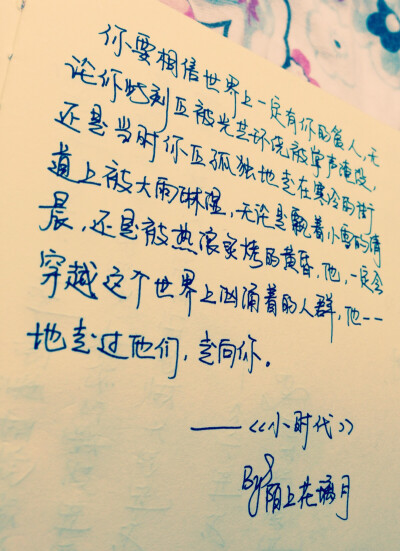 你要相信世界上一定有你的爱人,无
论你此刻正被光芒环绕被掌声淹没,
还是当时你正孤独地走在寒冷的街
道上被大雨淋湿,无论是飘着小雪的清
晨,还是被热浪炙烤的黄昏,他一定会
穿越这个世界上汹涌着的人群,他一一
地走过他们,走向你。
——《小时代》
By 陌上花璃月